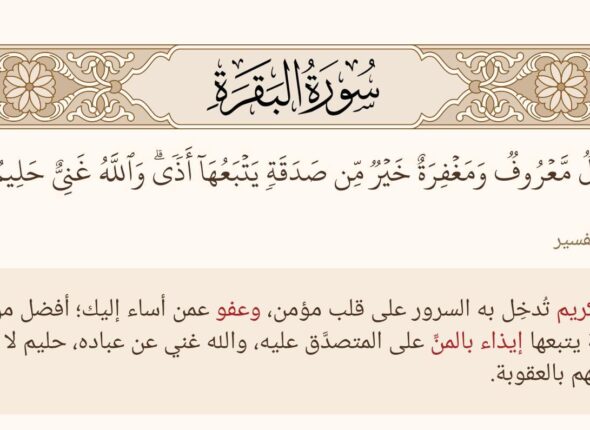 سُورَةُ البَقَرَةِ
مَّعۡرُوفٞ وَمَغۡفِرَةٌ خَيۡرٞ مِّن صَدَقَةٖ يَتۡبَعُهَآ أَذٗىۗ وَٱللَّهُ غَنِيٌّ حَلِيمٞ
تُدخِل به السرور على قلب مؤمن، وعفو عمن أساء إليك؛ أفضل
يتبعها إيذاء بالمنِّ على المتصدَّق عليه، والله غني عن عباده، حليم لا
بالعقوبة.